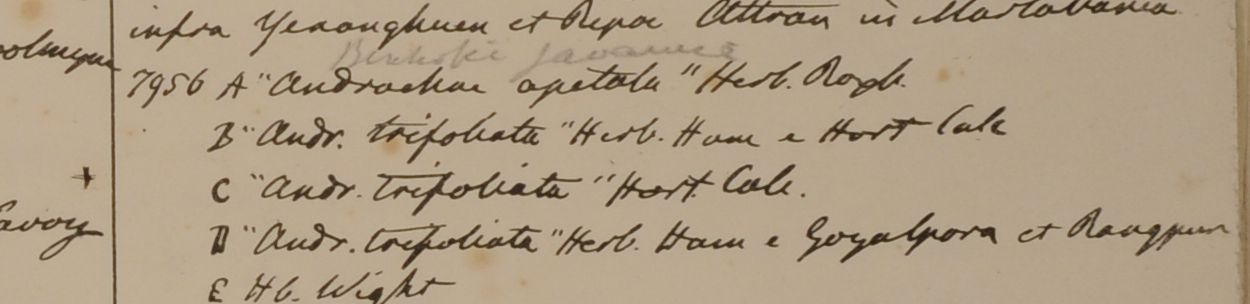 infra Yenanghuen et Ripae Attran in Martabania
Bischofia javanica
7956 A "Andrachne apetala" Herb. Roxb.
B "Andr. trifoliata" Herb. Ham e Hort Calc
+ C "Andr. trifoliata" Hort. Calc.
D "Andr. trifoliata" Herb. Ham e Goyalpora et Rangpur
E Hb. Wight